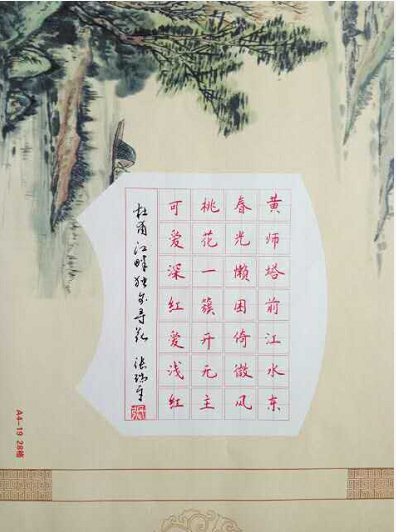 黄师塔前江水东
春光懒困倚微风
桃花一簇开无主
可爱深红爱浅红
杜甫江畔独步寻花 张瑞
A4-19 28格